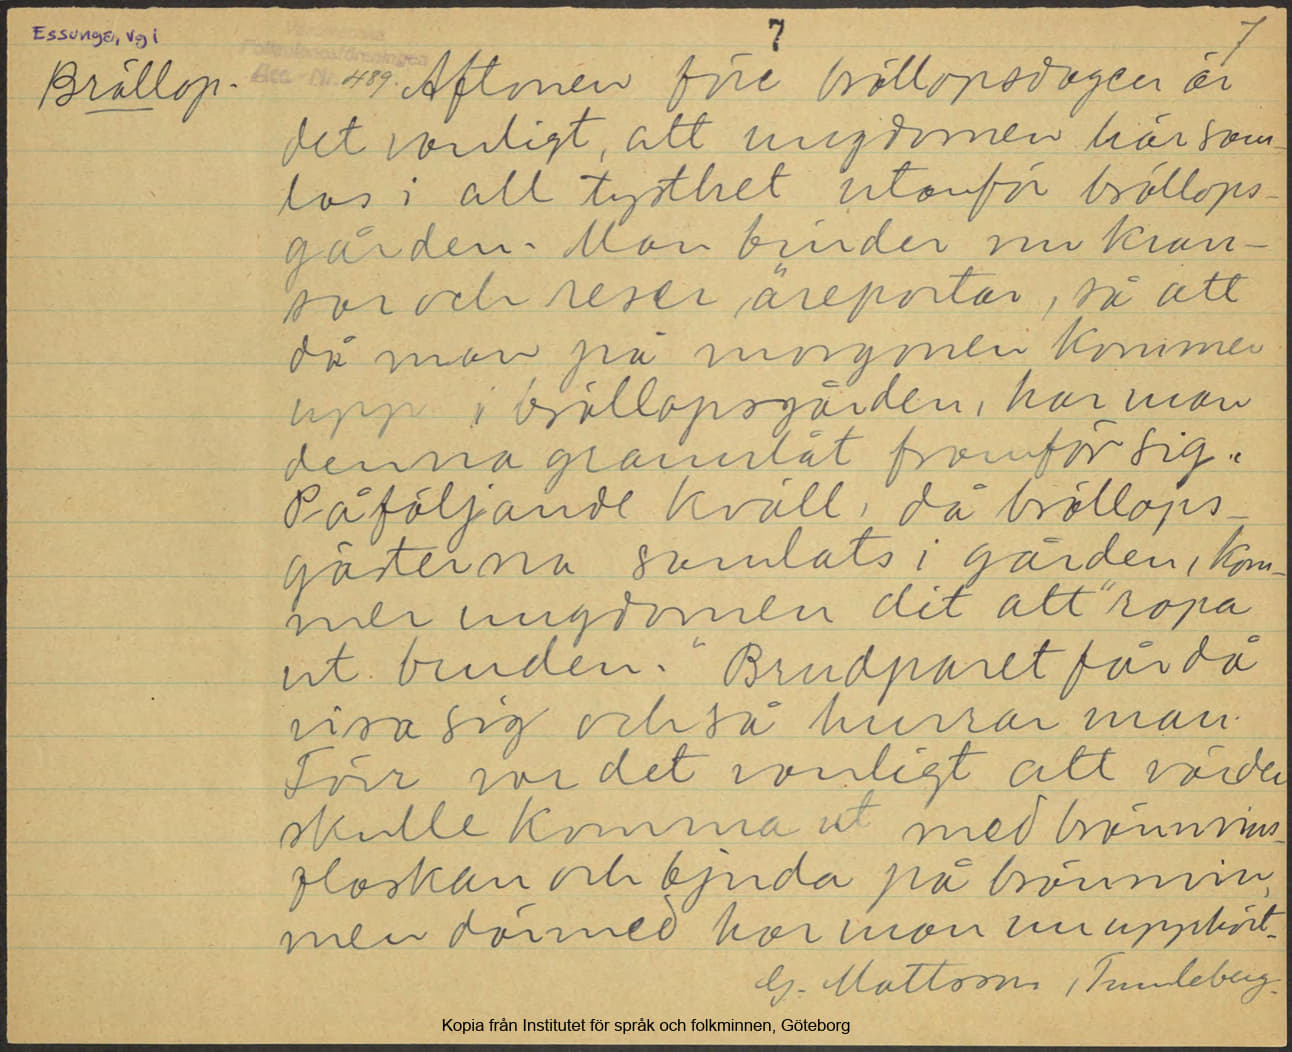 Essunga, Vg i
7
7
Västsvenska
Folkminnesföreningen
Acc. Nr. 489.
Bröllop. Aftonen före bröllopsdagen är
det vanligt, att ungdomen här sam-
las i all tysthet utanför bröllops-
gården. Man binder nu kran-
sar och reser äreportar, så att
då man på morgonen kommer
upp i bröllopsgården, har man
denna grannlåt framför sig.
Påföljande kväll, då bröllops-
gästerna samlats i gården, kom-
mer ungdomen dit att "ropa
ut bruden." Brudparet får då
visa sig och så hurrar man.
Förr var det vanligt att värden
skulle komma ut med brännvins-
flaskan och bjuda på brännvin,
men därmed har man nu upphört.
G. Mattsson, Trundeberg.
Kopia från Institutet för språk och folkminnen, Göteborg